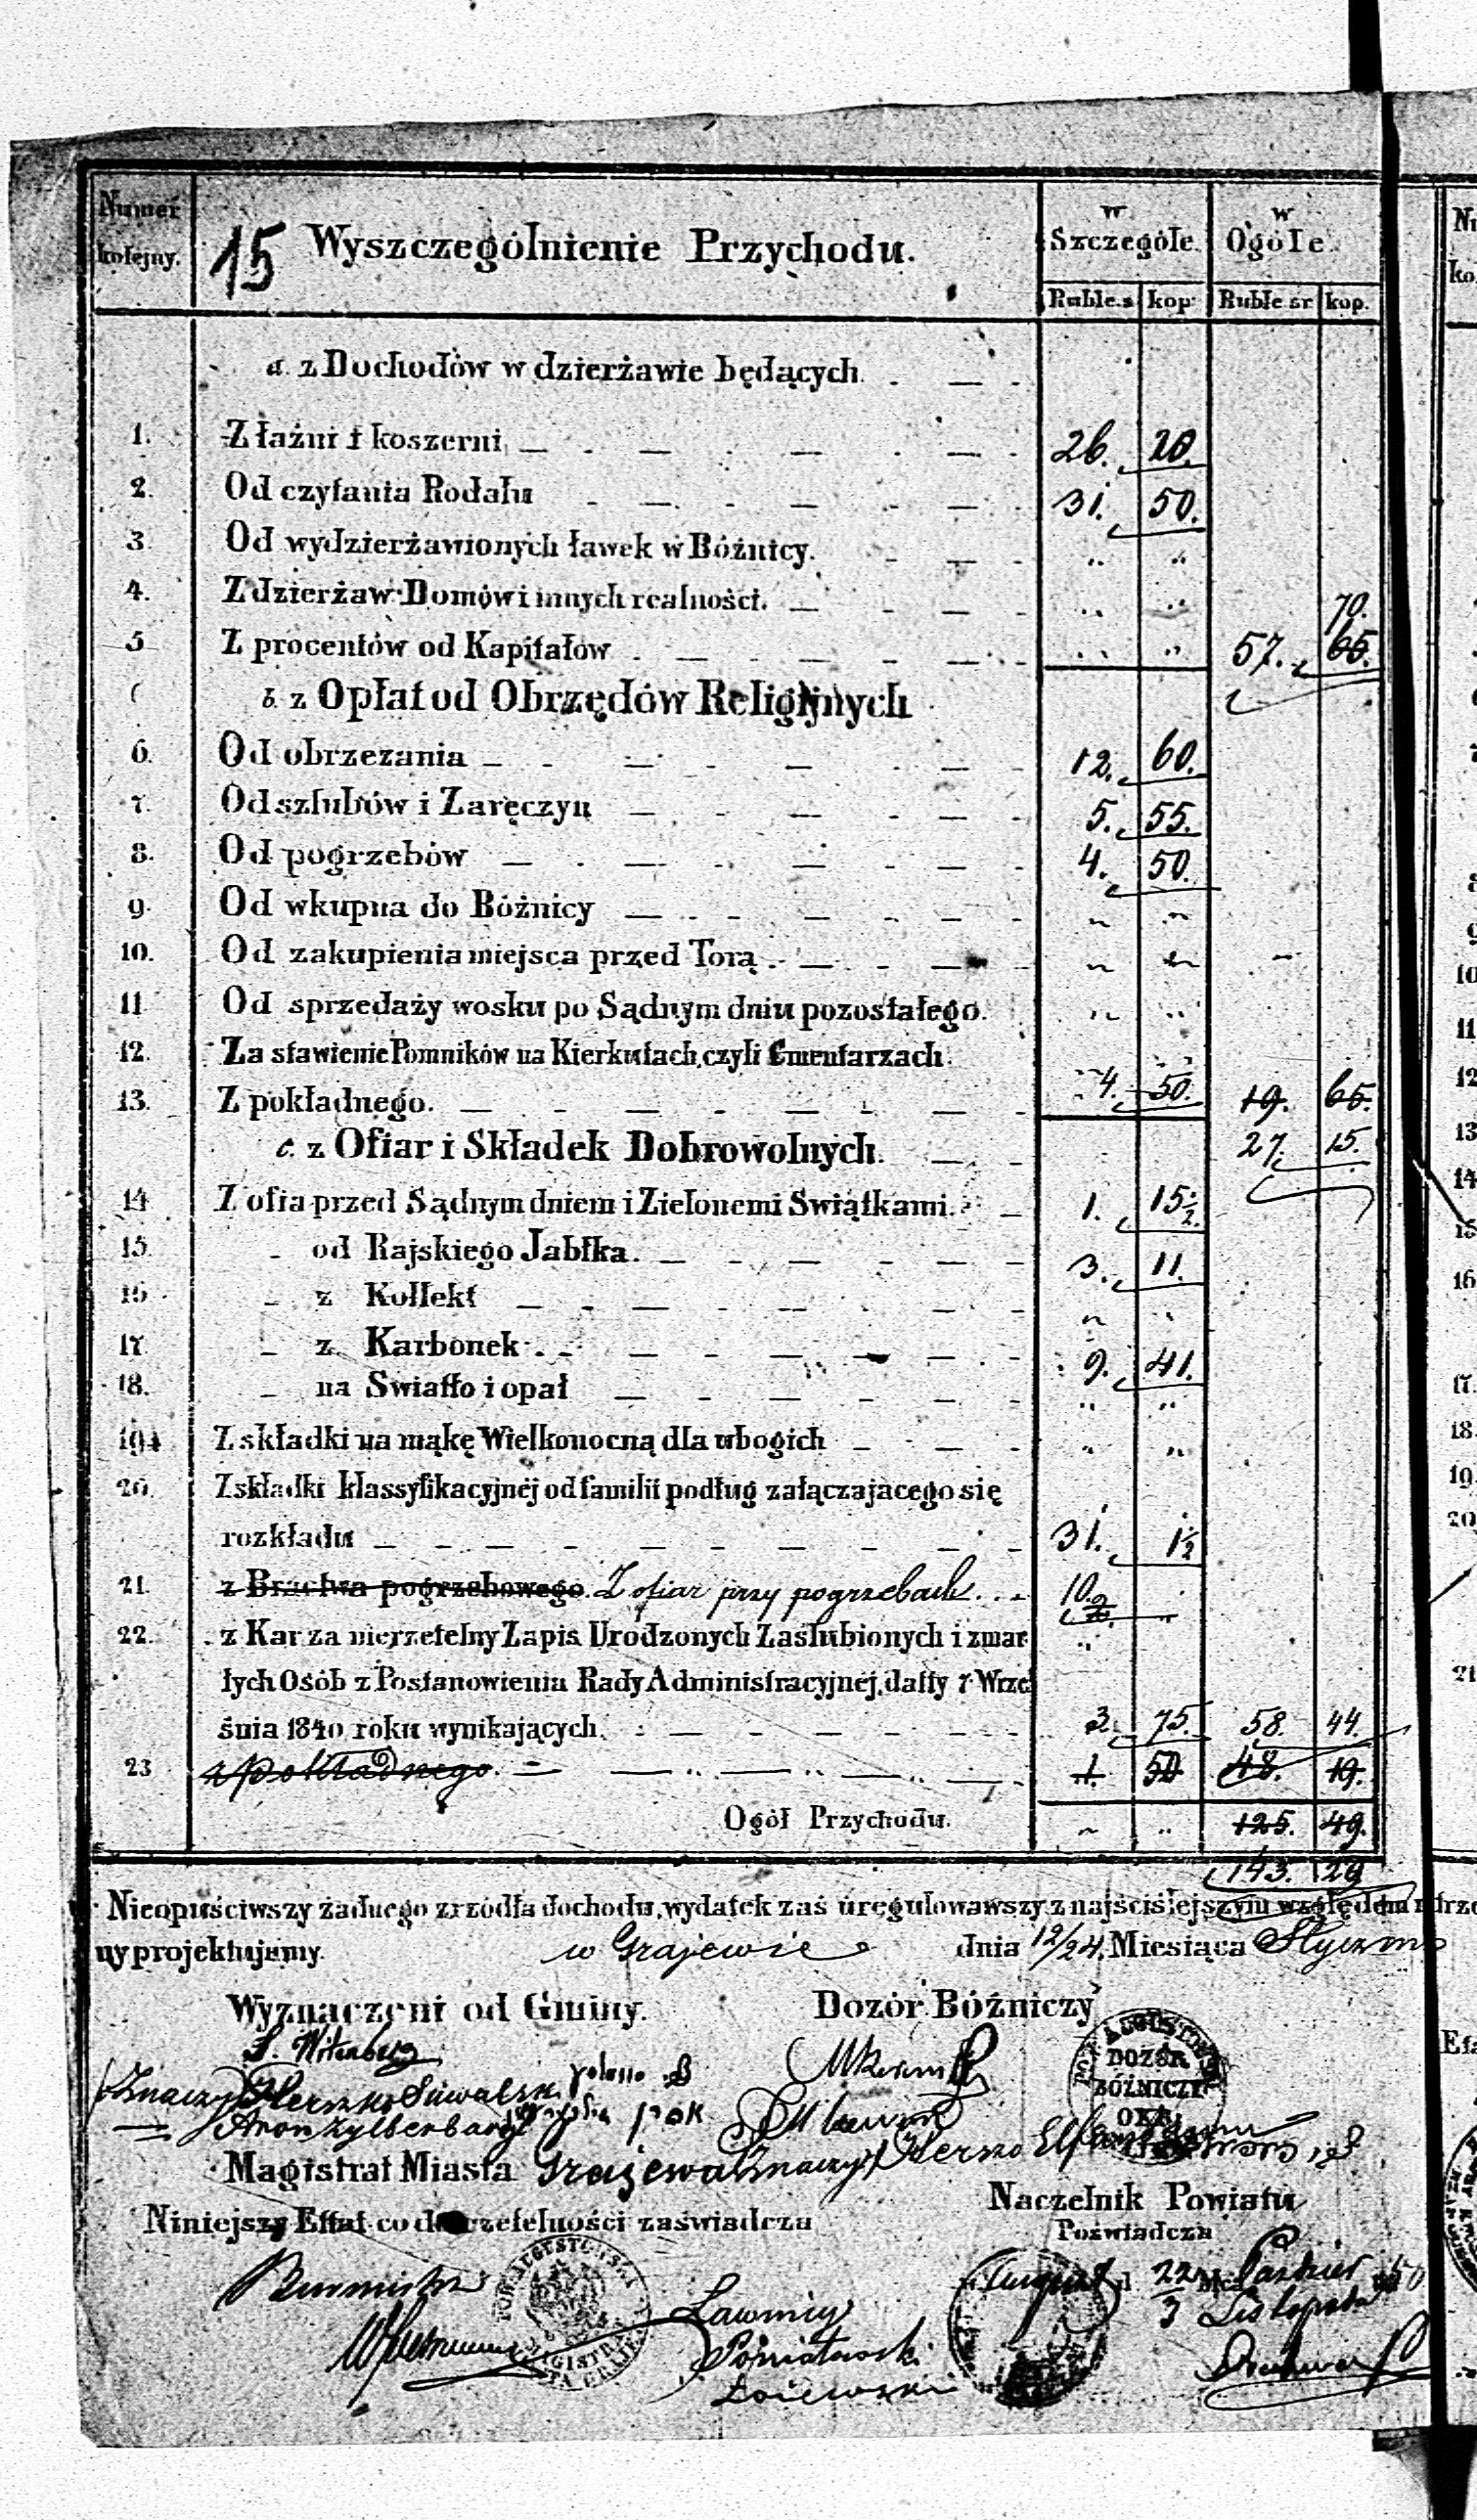 Numer kolejny.
15 Wyszczególnienie Przychodu.
w Szczególe. w Ogóle.
Ruble.s kop: Ruble sr kop.
a. z Dochodów w dzierżawie będących.
1. Z łaźni i koszerni 26. 20.
2. Od czytania Rodału 31. 50.
3 Od wydzierżawionych ławek w Bóżnicy. „ „
4. Z dzierżaw Domów i innych realności. „ „ 70.
5 Z procentów od Kapitałów „ „ 57. 65.
b. z Opłat od Obrzędów Religijnych
6. Od obrzezania 12. 60.
7. Od szlubów i Zaręczyn 5. 55.
8. Od pogrzebów 4. 50.
9. Od wkupna do Bóżnicy „ „
10. Od zakupienia miejsca przed Torą „ „
11 Od sprzedaży wosku po Sądnym dniu pozostałego. „ „
12. Za stawienie Pomników na Kierkutach, czyli Cmentarzach.
13. Z pokładnego. 4. 50. 19. 65.
c. z Ofiar i Składek Dobrowolnych. 27. 15.
14 Z ofia przed Sądnym dniem i Zielonemi Swiątkami. 1. 15½.
15 - od Rajskiego Jabłka. 3. 11.
16 - z Kollekt „ „
17 - z Karbonek 9. 41.
18. - na Swiatło i opał „ „
19 Z składki na mąkę Wielkonocną dla ubogich „ „
20. Z składki klassyfikacyjnéj od familii podług załączajacego się
rozkładu 31. 1½
21. z Bractwa pogrzebowego. Z ofiar przy pogrzebach. 10.
22. z Kar za nierzetelny Zapis Urodzonych Zaslubionych i zmar
łych Osób z Postanowienia Rady Administracyjnej, datty 7 Wrze
śnia 1840 roku wynikających. 3. 75. 58. 44.
23 z pokładnego. 1. 50 48. 19.
Ogół Przychodu. „ „ 125. 49.
143. 29
Nieopuściwszy żadnego zrzódła dochodu, wydatek zaś uregulowawszy z najściślejszym względem
ny projektujemy. w Grajewie dnia 12/24. Miesiąca Stycznia
Wyznaczeni od Gminy. Dozór Bóżniczy
S. Witenberg
Znaczy Herszko Suwalsk
Aron Zylberbarg
DOZÓR
BÓŻNICZY
OKR.
Znaczy Herszko
Magistrat Miasta Grajewa
Naczelnik Powiatu
Niniejszy Ettat co do rzetelności zaświadcza
Poświadcza
Burmistrz
Ławnicy
August d. 22 Paździer 50
3 Listopada
Poniatowski